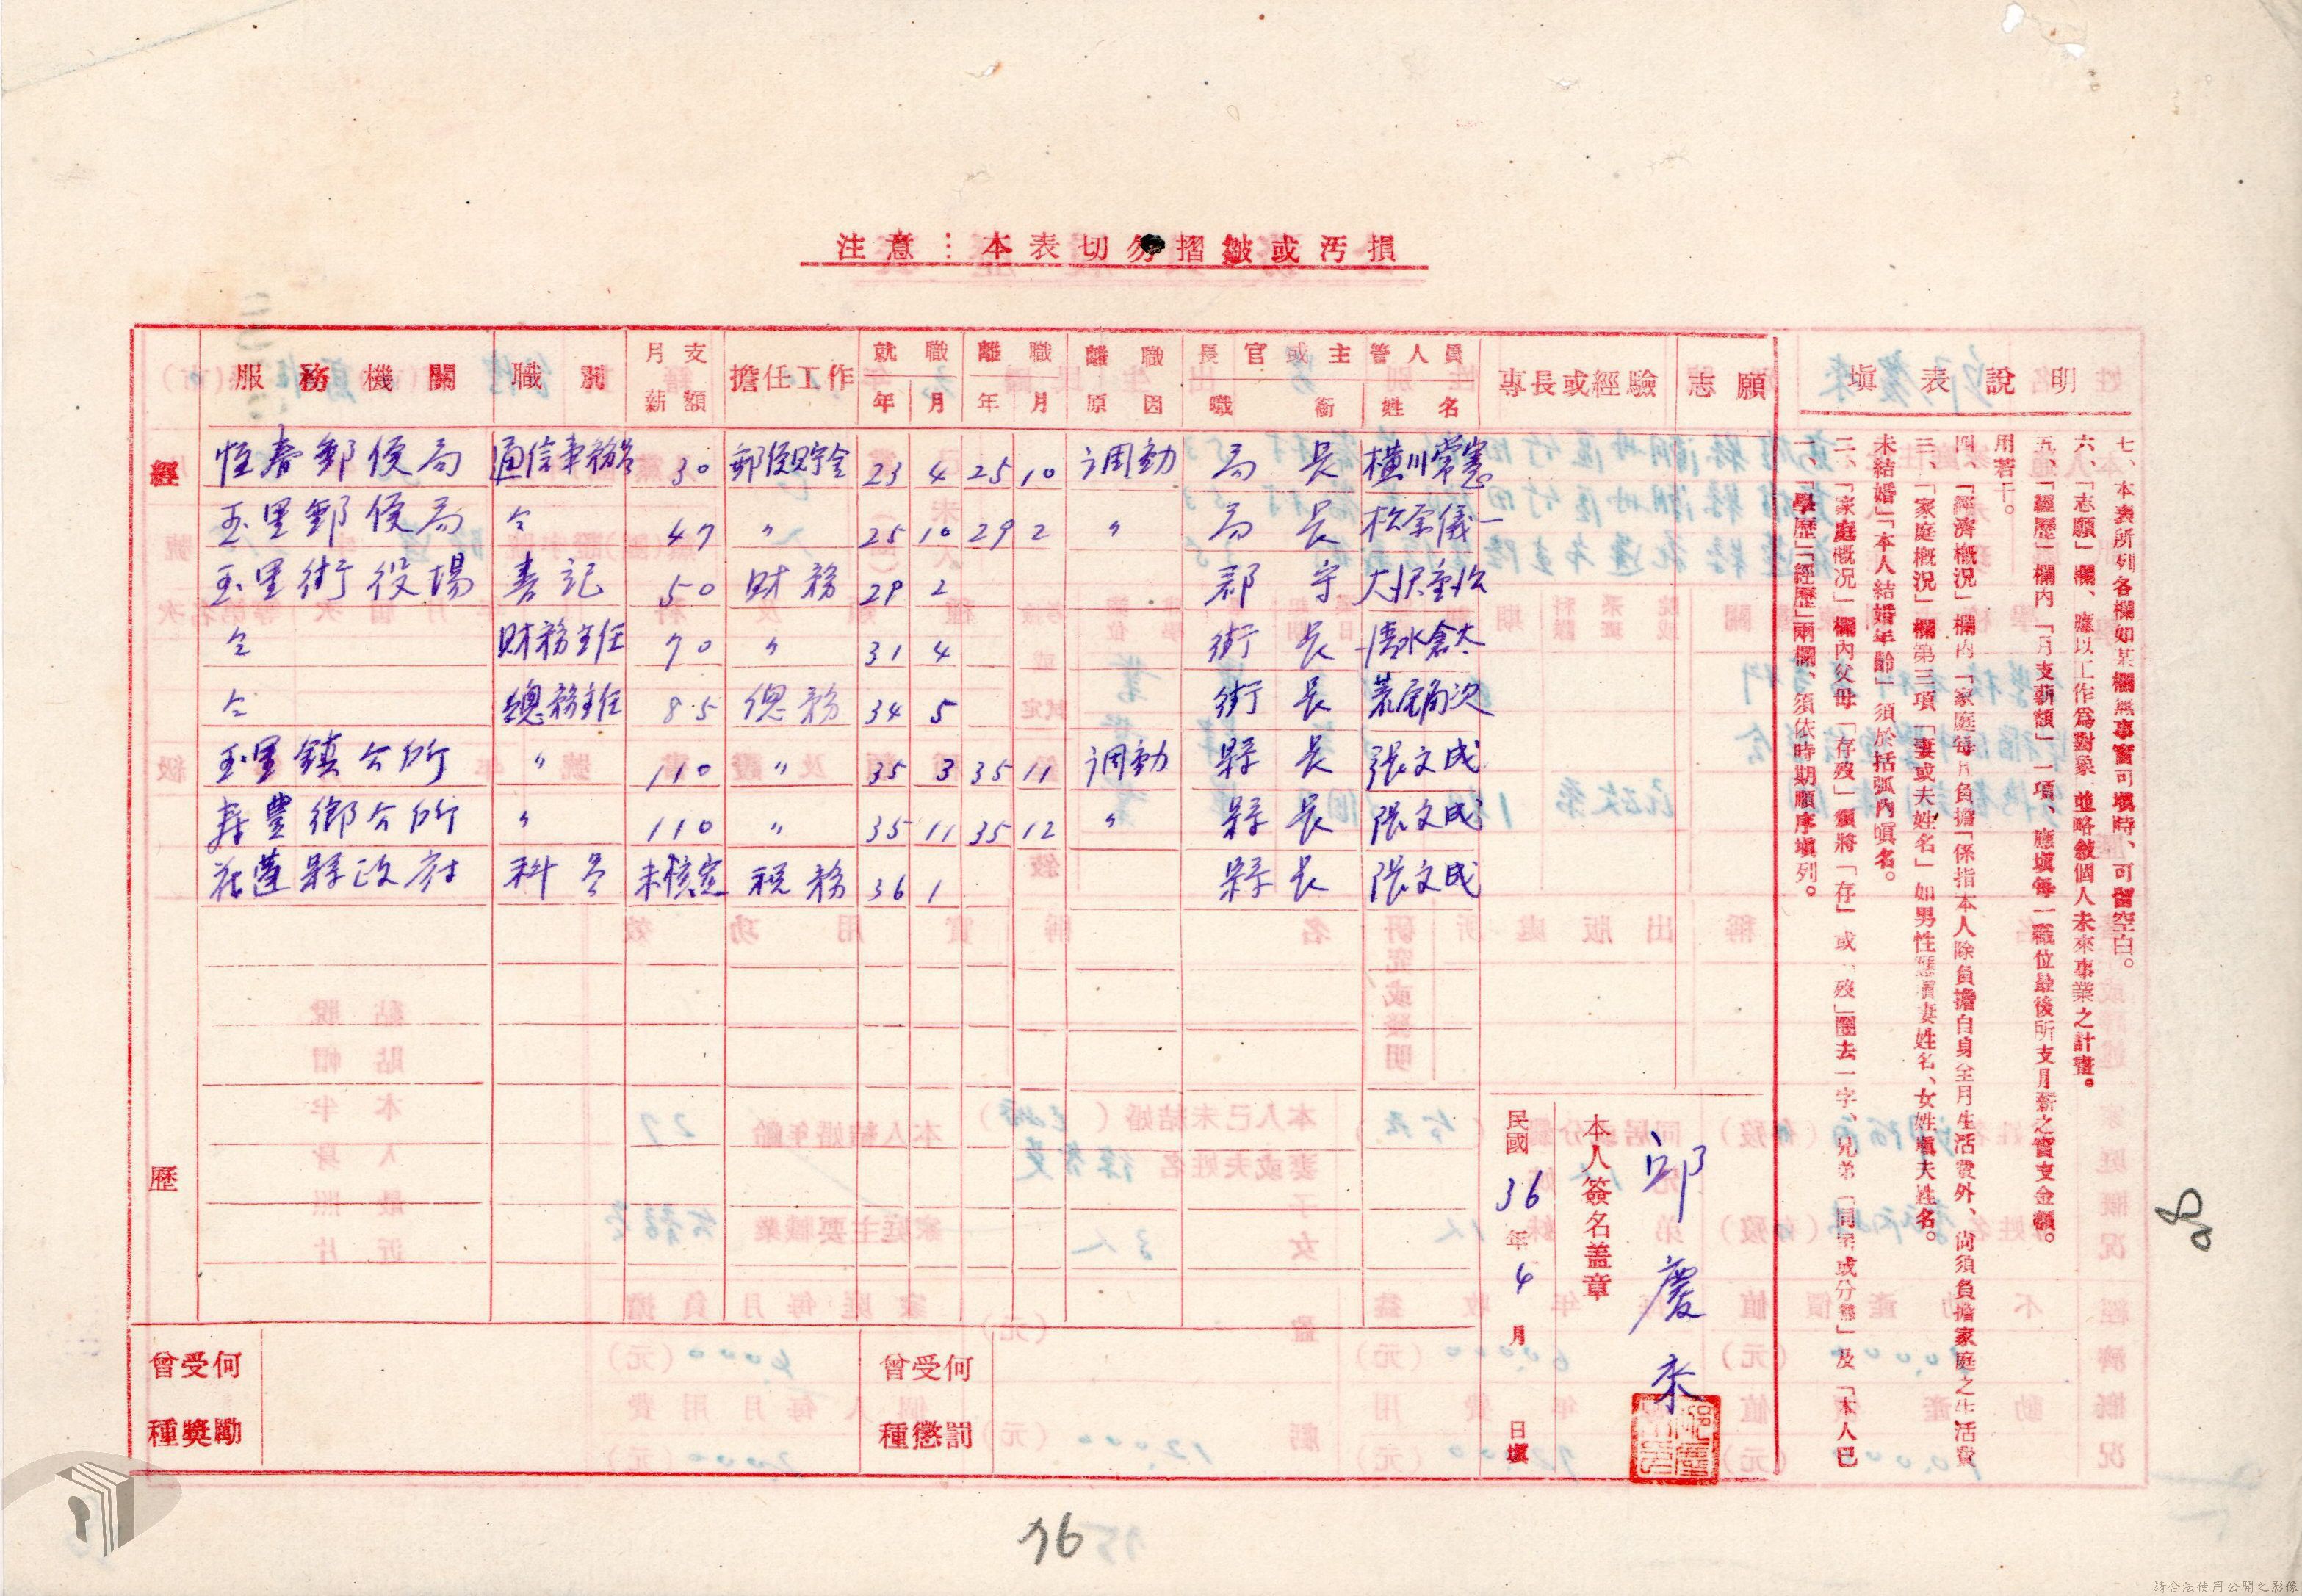 注意：本表切勿摺皺或汚損
經歷
服務機關 職別 月支薪額 擔任工作 就職年月 離職年月 離職原因 長官或主管人員 職銜 姓名 專長或經驗 志願
恒春郵便局 通信事務員 30 郵便貯金 23 4 25 10 调動 局長 横川常憲
玉里郵便局 仝 47 〃 25 10 29 2 〃 局長 松原儀一
玉里街役場 書記 50 財務 29 2 郡守 大沢重次
仝 財務主任 70 〃 31 4 街長 清水倉太
仝 總務主任 85 總務 34 5 街長
玉里鎮公所 〃 110 〃 35 3 35 11 调動 縣長 張文成
寿豐鄉公所 〃 110 〃 35 11 35 12 〃 縣長 張文成
花蓮縣政府 科員 未核定 税務 36 1 縣長 張文成
曾受何種獎勵
曾受何種懲罰
民國36年4月 日塡
本人簽名盖章
邱慶來
塡表說明
一、「學歷」「經歷」兩欄、須依時期順序塡列。
二、「家庭概况」欄內父母「存歿」須將「存」或「歿」圈去一字、兄弟「同居或分爨」及「本人已
未結婚」「本人結婚年齡」須於括弧內塡名。
三、「家庭槪況」欄第三項「妻或夫姓名」如男性應塡妻姓名、女姓塡夫姓名。
四、「經濟槪況」欄內「家庭每月負擔」係指本人除負擔自身全月生活費外、尙須負擔家庭之生活費
用若干。
五、「經歷」欄內「月支薪額」一項、應塡每一職位最後所支月薪之實支金額。
六、「志願」欄、應以工作爲對象並略敘個人未來事業之計畫。
七、本表所列各欄如某欄無事實可塡時、可留空白。
76
28
請合法使用公開之影像